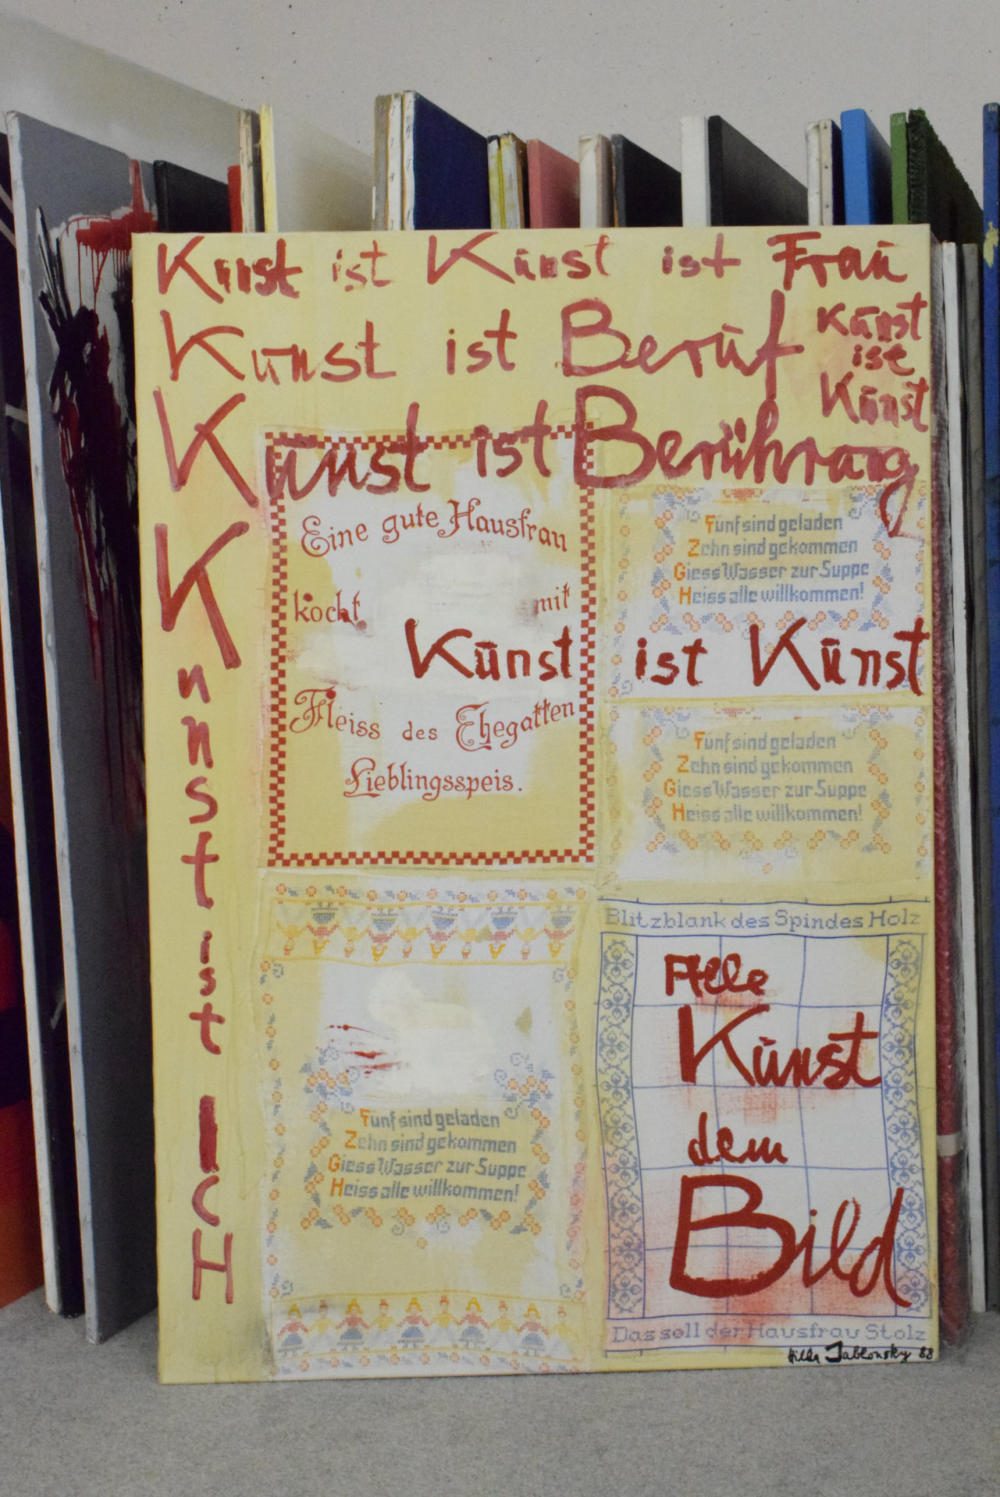 Kunst ist Kunst ist Frau
Kunst ist Beruf
Kunst
ist
Kunst
Kunst ist Berührung
Kunst ist ICH
Eine gute Hausfrau
kocht mit
Kunst ist Kunst
Fleiss des Ehegatten
Lieblingsspeis.
Fünf sind geladen
Zehn sind gekommen
Giess Wasser zur Suppe
Heiss alle willkommen!
Fünf sind geladen
Zehn sind gekommen
Giess Wasser zur Suppe
Heiss alle willkommen!
Fünf sind geladen
Zehn sind gekommen
Giess Wasser zur Suppe
Heiss alle willkommen!
Blitzblank des Spindes Holz
Alle
Kunst
dem
Bild
Das soll der Hausfrau Stolz
Hilda Jablonsky 88